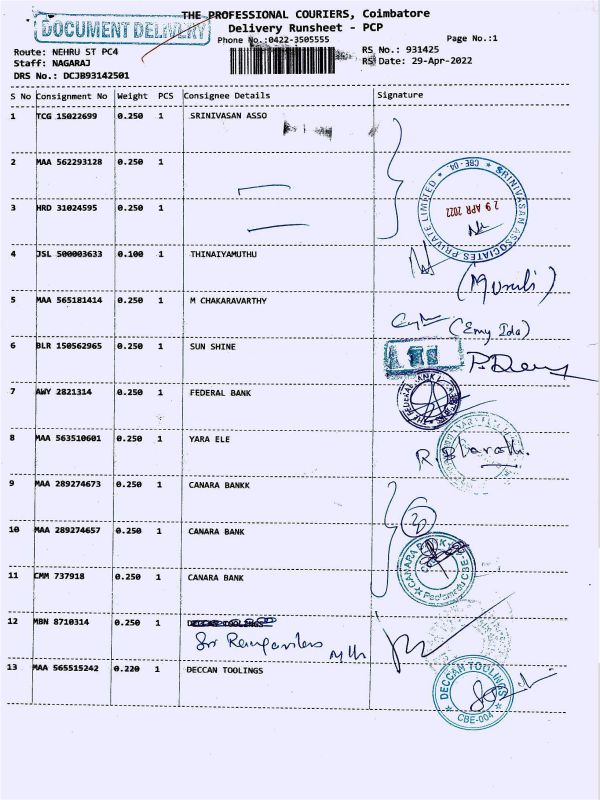 THE PROFESSIONAL COURIERS, Coimbatore
DOCUMENT DELIVERY
Delivery Runsheet - PCP
Phone No.:0422-3505555 Page No.:1
Route: NEHRU ST PC4 RS No.: 931425
Staff: NAGARAJ RS Date: 29-Apr-2022
DRS No.: DCJB93142501
S No Consignment No Weight PCS Consignee Details Signature
1 TCG 15022699 0.250 1 SRINIVASAN ASSO
2 MAA 562293128 0.250 1
SRINIVASAN ASSOCIATES PRIVATE LIMITED ★ CBE-04 ★
29 APR 2022
3 HRD 31024595 0.250 1
4 JSL 500003633 0.100 1 THINAIYAMUTHU
(Murali)
5 MAA 565181414 0.250 1 M CHAKARAVARTHY
(Emy Ida)
6 BLR 150562965 0.250 1 SUN SHINE
7 AWY 2821314 0.250 1 FEDERAL BANK
8 MAA 563510601 0.250 1 YARA ELE
R. Bharathi.
9 MAA 289274673 0.250 1 CANARA BANKK
3
10 MAA 289274657 0.250 1 CANARA BANK
CANARA BANK
11 CMM 737918 0.250 1 CANARA BANK
12 MBN 8710314 0.250 1 DECCAN TOOLINGS
Sri
13 MAA 565515242 0.220 1 DECCAN TOOLINGS
DECCAN TOOLINGS
★ CBE-004 ★